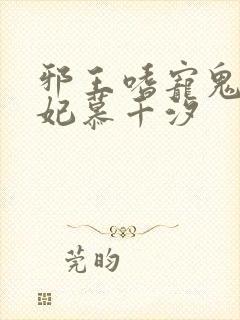 邪王嗜寵鬼
妃慕千汐
莞昀